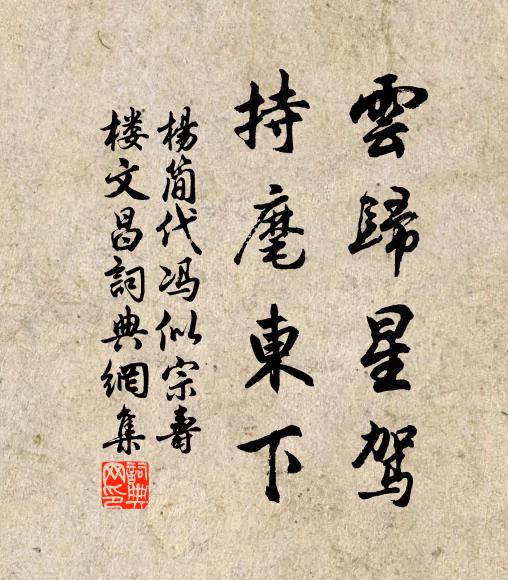 雲歸星駕
持麾東下
楊簡代冯似宗壽
楼文昌詞典網集
詞典
网印